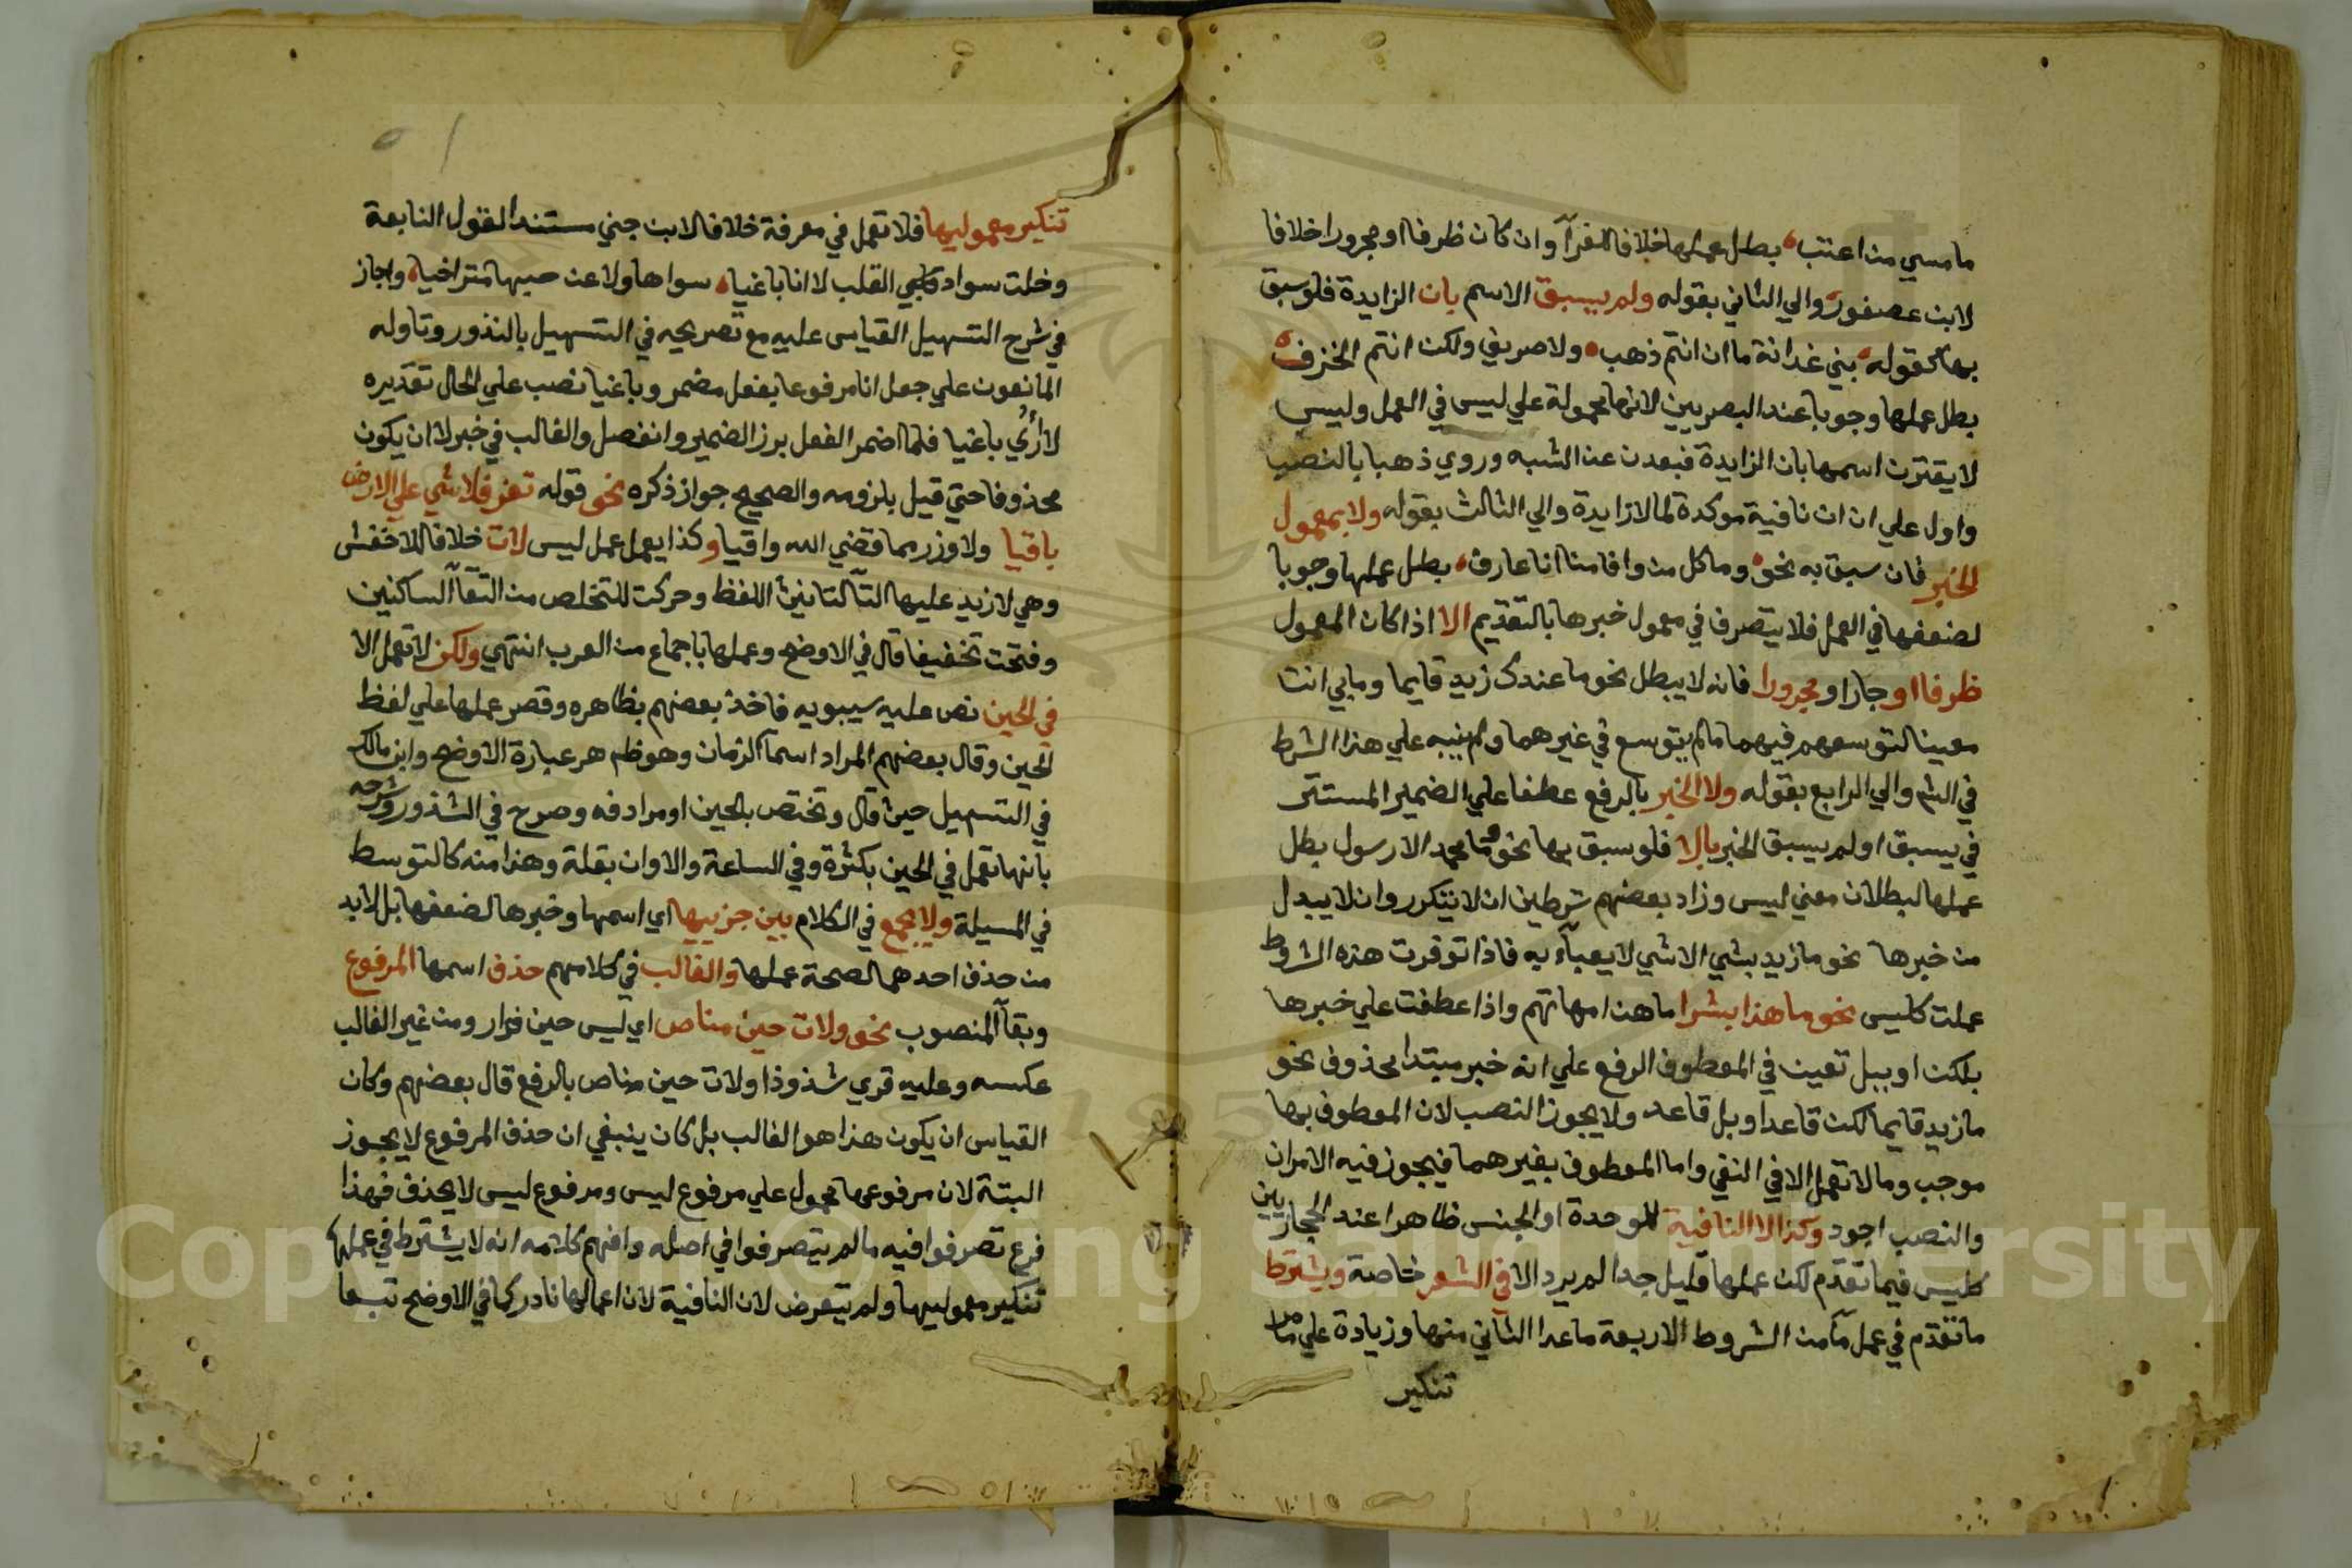 ما مسي من اعتب بطل عملها خلافا للفرآ وان كان ظرفا او مجرورا خلافا
لابن عصفور والي الثاني بقوله ولم يسبق الاسم بان الزايدة فلو سبق
بها كقوله بني غدانة ما ان انتم ذهب ولا صريف ولكن انتم الخزف
بطل عملها وجوبا عند البصريين لانها محمولة علي ليس في العمل وليس
لا يقترن اسمها بان الزايدة فبعدت عن الشبه وروي ذهبا بالنصب
واول علي ان ان نافية موكدة لما لا زايدة والي الثالث بقوله ولا بمعمول
الخبر فان سبق به نحو وما كل من وافا منا انا عارف بطل عملها وجوبا
لضعفها في العمل فلا يتصرف في معمول خبرها بالتقديم الا اذا كان المعمول
ظرفا او جارا ومجرورا فانه لا يبطل نحو ما عندك زيد قايما وما بي انت
معينا لتوسعهم فيهما ما لم يتوسع في غيرهما ولم ينبه علي هذا الشرط
في الشم والي الرابع بقوله ولا الخبر بالرفع عطفا علي الضمير المستتر
في يسبق اولم يسبق الخبر بالا فلو سبق بها نحو وما محمد الا رسول بطل
عملها لبطلان معني ليس وزاد بعضهم شرطين ان لا يتكرر وان لا يبدل
من خبرها نحو ما زيد بشي الا شي لا يعبآء به فاذا توفرت هذه الشروط
عملت كليس نحو ما هذا بشرا ما هن امهاتهم واذا عطفت علي خبرها
بلكن او ببل تعين في المعطوف الرفع علي انه خبر مبتدا محذوف نحو
ما زيد قايما لكن قاعدا وبل قاعد ولا يجوز النصب لان المعطوف بها
موجب وما لا تعمل الا في النفي واما المعطوف بغيرهما فيجوز فيه الامران
والنصب اجود وكذا لا النافية للوحدة او الجنس ظاهرا عند الحجازيين
كليس فيما تقدم لكن عملها قليل جدا لم يرد الا في الشعر خاصة ويشترط
ما تقدم في عمل مآ من الشروط الاربعة ما عدا الثاني منها وزيادة علي ما مر
تنكير
تنكير معموليها فلا تعمل في معرفة خلافا لابن جني مستندا لقول النابغة
وخلت سواد القلب لا انا باغيا سواها ولا عن حبها متراخيا واجاز
في شرح التسهيل القياس عليه مع تصريحه في التسهيل بالنذور وتاوله
المانعون علي جعل انا مرفوعا بفعل مضمر وباغيا نصب علي الحال تقديره
لا أُرُي باغيا فلما اضمر الفعل برز الضمير وانفصل والغالب في خبر لا ان يكون
محذوفا حتي قيل بلزومه والصحيح جواز ذكره نحو قوله تعز فلا شي علي الارض
باقيا ولا وزر مما قضي الله واقيا وكذا يعمل عمل ليس لات خلافا للاخفش
وهي لا زيد عليها التآ لتانيث اللفظ وحركت للتخلص من التقآ الساكنين
وفتحت تخفيفا قال في الاوضح وعملها باجماع من العرب انتهي ولكن لا تعمل الا
في الحين نص عليه سيبويه فاخذ بعضهم بظاهره وقصر عملها علي لفظ
الحين وقال بعضهم المراد اسمآ الزمان وهو ظاهر عبارة الاوضح وابن مالك
في التسهيل حيث قال وتختص بالحين او مرادفه وصرح في الشذور وشرحه
بانها تعمل في الحين بكثرة وفي الساعة والاوان بقلة وهذا منه كالتوسط
في المسيلة ولا يجمع في الكلام بين جزييها اي اسمها وخبرها لضعفها بل لا بد
من حذف احدهما لصحة عملها والغالب في كلامهم حذف اسمها المرفوع
وبقآ المنصوب نحو ولات حين مناص اي ليس حين فرار ومن غير الغالب
عكسه وعليه قري شذوذا ولات حين مناص بالرفع قال بعضهم وكان
القياس ان يكون هذا هو الغالب بل كان ينبغي ان حذف المرفوع لا يجوز
البتة لان مرفوعها محمول علي مرفوع ليس ومرفوع ليس لا يحذف فهذا
فرع تصرفوا فيه ما لم يتصرفوا في اصله وافهم كلامه انه لا يشترط في عملها
تنكير معموليها ولم يتعرض لان النافية لان اعمالها نادر كما في الاوضح تبعا
Copyright © King Saud University